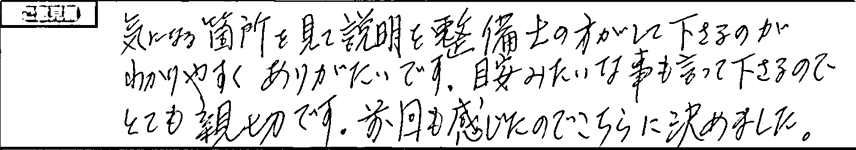 ご意見欄
気になる箇所を見て説明を整備士の方がして下さるのが
わかりやすく ありがたいです。目安みたいな事も言って下さるので
とても親切です。前回も感じたのでこちらに決めました。